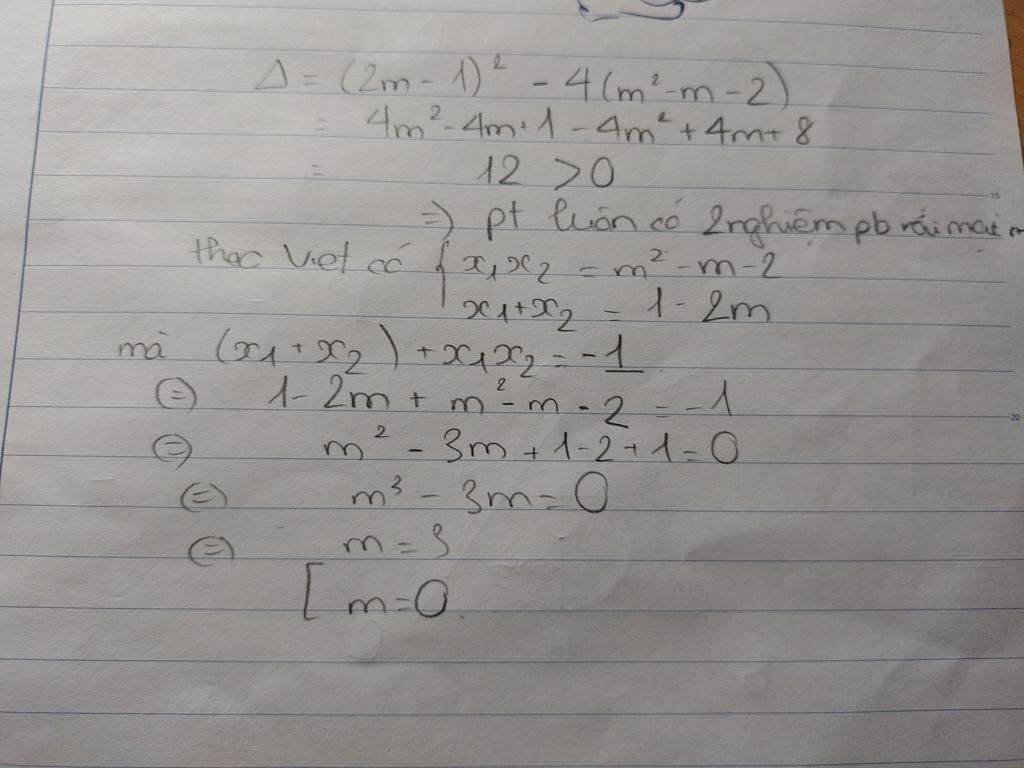 Δ = (2m - 1)² - 4(m² - m - 2)
= 4m² - 4m + 1 - 4m² + 4m + 8
15
= 12 > 0
=> pt luôn có 2 nghiệm pb với mọi m
theo Viet có { x₁x₂ = m² - m - 2
x₁ + x₂ = 1 - 2m
mà (x₁ + x₂) + x₁x₂ = -1
⇔ 1 - 2m + m² - m - 2 = -1
20
⇔ m² - 3m + 1 - 2 + 1 = 0
⇔ m³ - 3m = 0
⇔ m = 3
[ m = 0